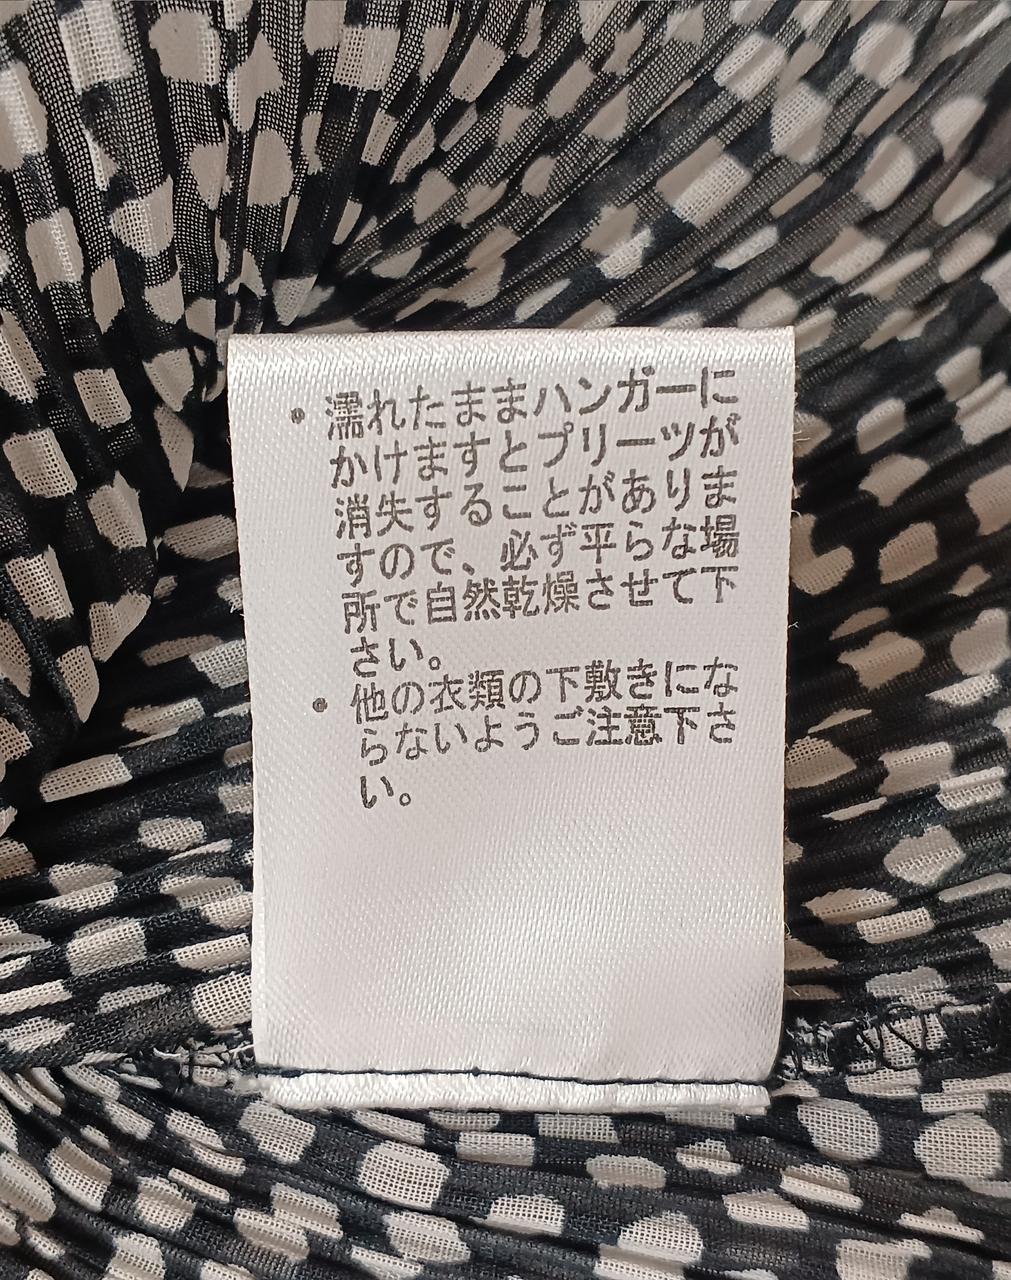 ・濡れたままハンガーに
かけますとプリーツが
消失することがありま
すので、必ず平らな場
所で自然乾燥させて下
さい。
・他の衣類の下敷きにな
らないようご注意下さ
い。